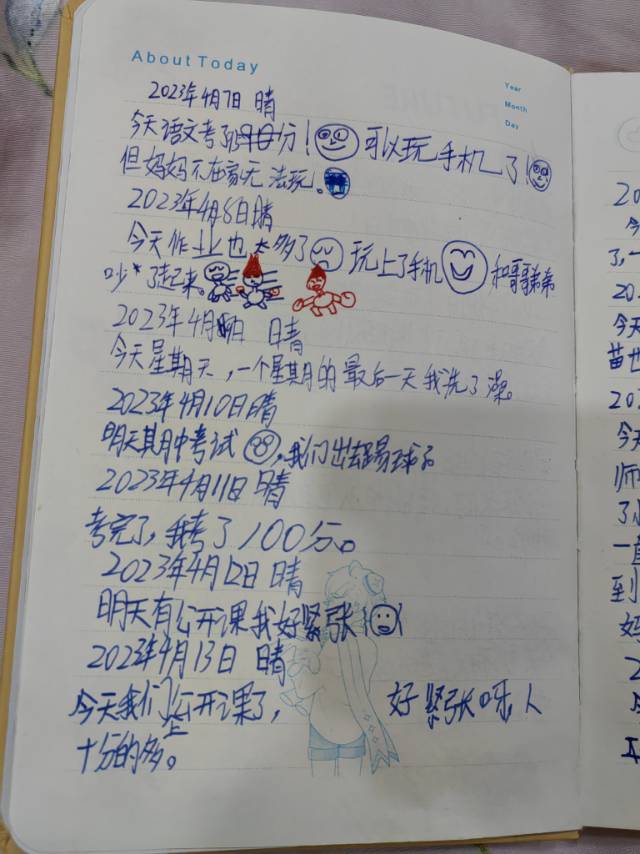 About Today
Year
Month
Day
2023年4月7日 晴
今天语文考了分！可以玩手机了！
但妈妈不在家无法玩。
2023年4月8日晴
今天作业也太多了 玩上了手机 和哥哥弟弟
吵了起来。
2023年4月 日 晴
今天星期天，一个星期的最后一天我洗了澡。
2023年4月10日晴
明天期中考试，我们出去踢球了
2023年4月11日 晴
考完了，我考了100分。
2023年4月12日 晴
明天有公开课我好紧张
2023年4月13日 晴
今天我们上公开课了， 好紧张呀，人
十分的多。